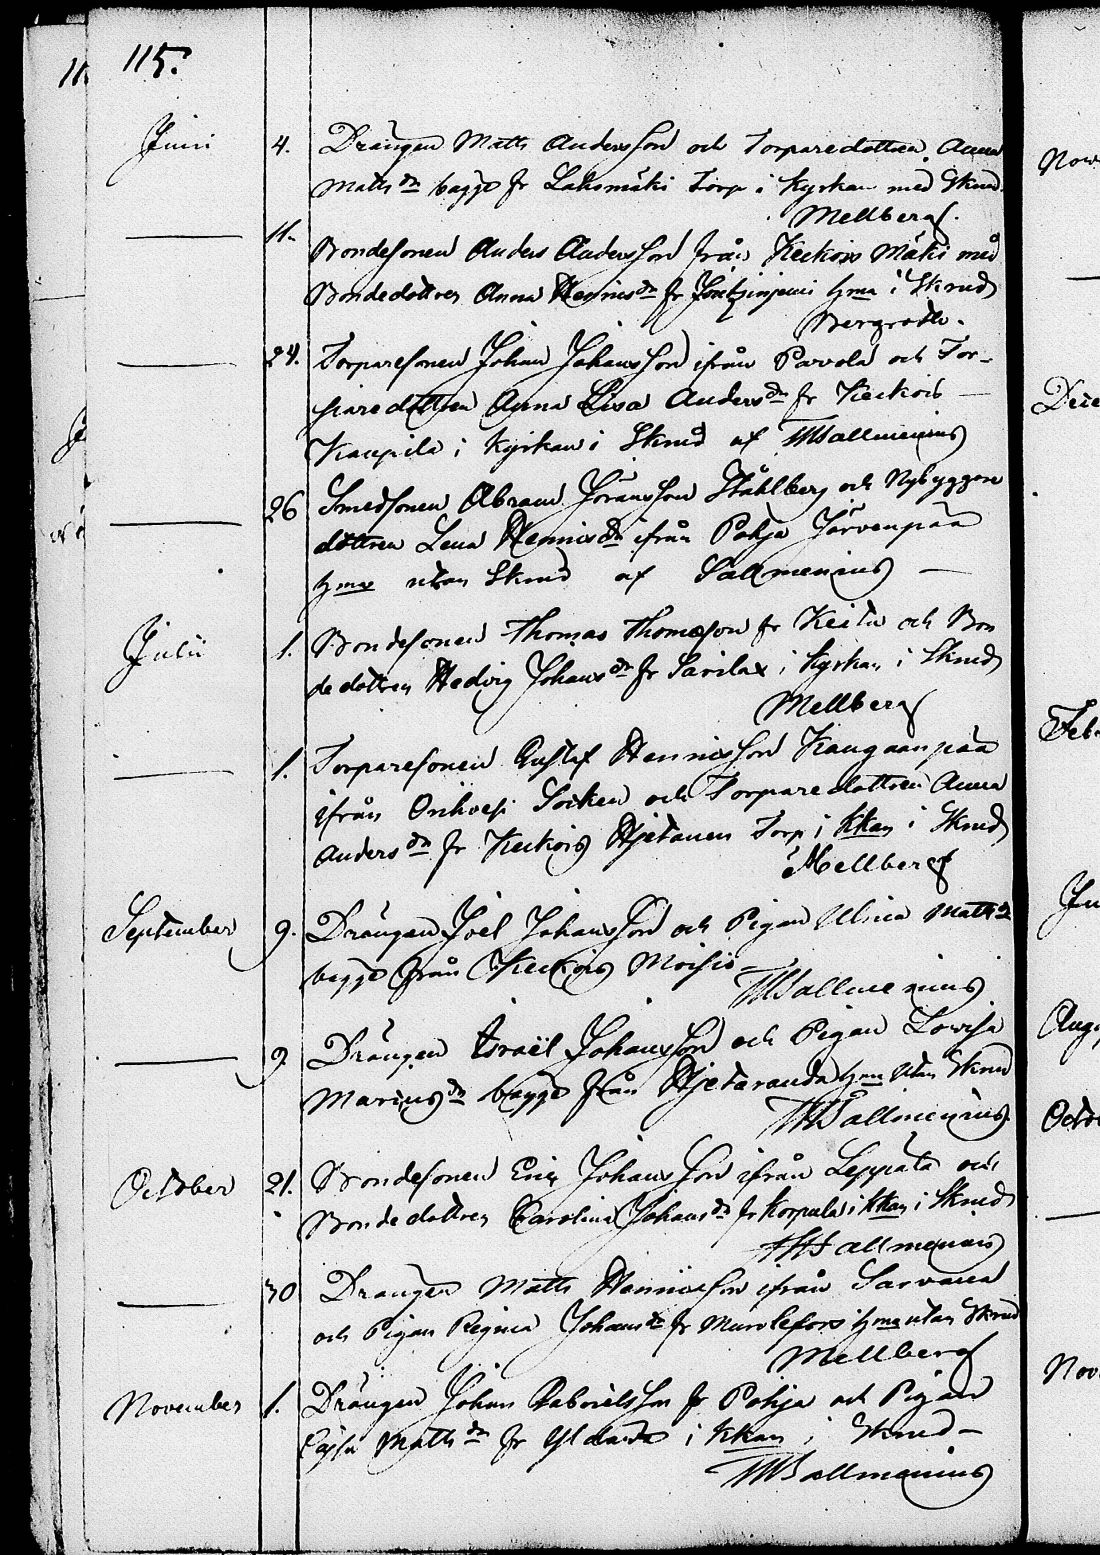 115.
Junii 4. Drängen Matts Andersson och Torparedottren Anna
Matts dr bägge fr Laksmäki Torp i Kyrkan med Skrud.
Mellberg.
11. Bondesonen Anders Andersson från Keckois Mäki med
Bondedottren Anna Henrics dr fr hma i Skrud
Bergroth.
24. Torparesonen Johan Johansson ifrån Parvola och Tor-
paredottren Anna Lisa Anders dr fr Keckois
Kaupila i Kyrkan i Skrud af Wallmenius
26 Smedsonen Abram Göransson Ståhlberg och Nybyggare
dottren Lena Henrics dr ifrån Pohja Järvenpää
hma utan Skrud af Sallmenius
Julii 1. Bondesonen Thomas Thomasson fr Keitu och Bon
dedottren Hedvig Johans dr fr Savilax i Kyrkan i Skrud
Mellberg
1. Torparesonen Gustaf Henricsson Kangaanpää
ifrån Orihvesi Socken och Torparedottren Anna
Anders dr fr Keckois Hjetanen Torp i Kkan i Skrud
Mellberg
September 9. Drängen Joël Johansson och Pigan Ulrica Matts dr
bägge från Keckois Moisio
Wallmenius
9. Drängen Israël Johansson och Pigan Lovisa
Marius dr bägge från Hjetaranda hma utan Skrud
Wallmenius.
October 21. Bondesonen Eric Johansson ifrån Leppälä och
Bondedottren Carolina Johans dr fr Korpula i Kkan i Skrud
Wallmenius
30 Drängen Matts Henricsson ifrån Sarvana
och Pigan Regina Johans dr fr Murolefors hma utan Skrud
Mellberg
November 1. Drängen Johan Gabrielsson fr Pohja och Pigan
Cajsa Matts dr fr i Kkan i Skrud
Wallmenius